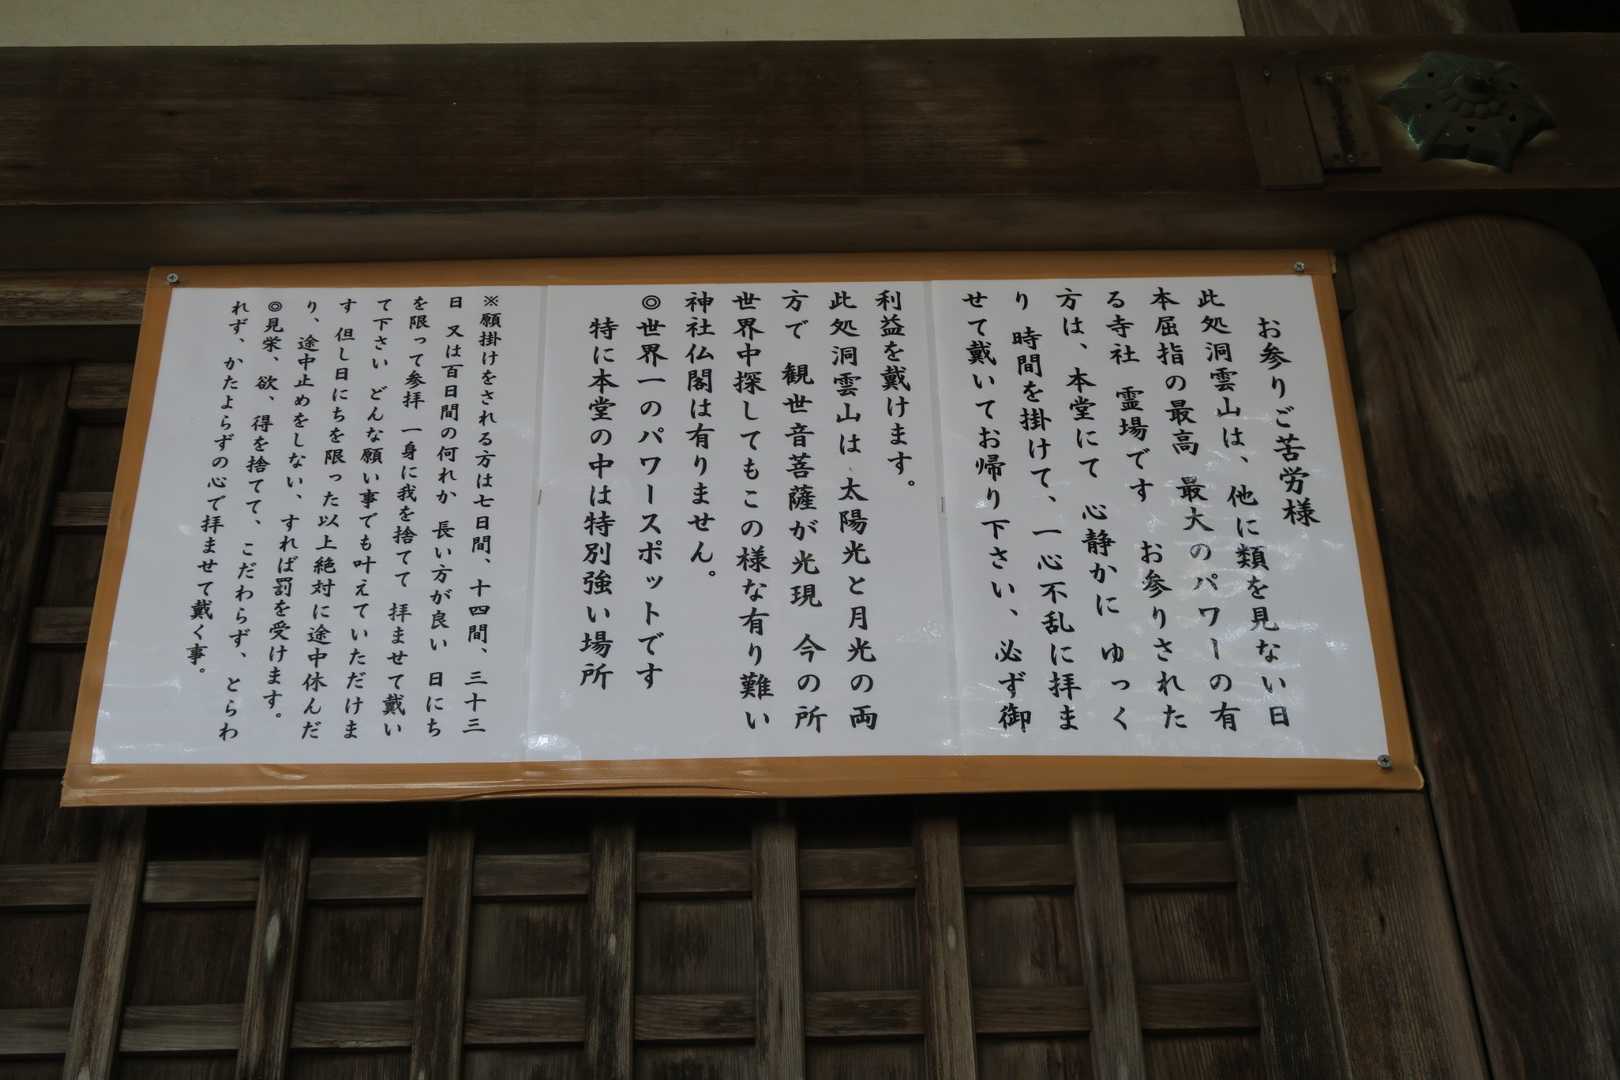 お参りご苦労様
此処洞雲山は、他に類を見ない日
本屈指の最高 最大のパワーの有
る寺社 霊場です お参りされた
方は、本堂にて 心静かに ゆっく
り 時間を掛けて、一心不乱に拝ま
せて戴いてお帰り下さい、必ず御
利益を戴けます。
此処洞雲山は、太陽光と月光の両
方で 観世音菩薩が光現 今の所
世界中探してもこの様な有り難い
神社仏閣は有りません。
◎世界一のパワースポットです
特に本堂の中は特別強い場所
※願掛けをされる方は七日間、十四間、三十三
日 又は百日間の何れか 長い方が良い 日にち
を限って参拝 一身に我を捨てて 拝ませて戴い
て下さい どんな願い事でも叶えていただけま
す 但し日にちを限った以上絶対に途中休んだ
り、途中止めをしない、すれば罰を受けます。
◎見栄、欲、得を捨てて、こだわらず、とらわ
れず、かたよらずの心で拝ませて戴く事。